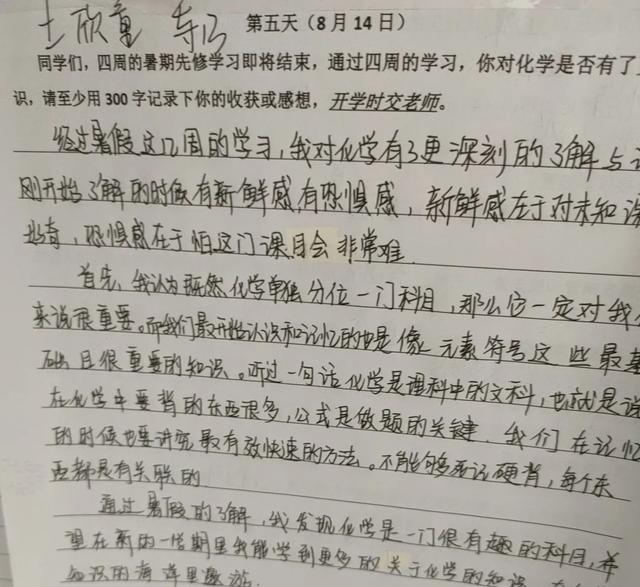 王欣童
第五天（8月14日）
同学们，四周的暑期先修学习即将结束，通过四周的学习，你对化学是否有了
识，请至少用300字记录下你的收获或感想，开学时交老师。
经过暑假这几周的学习，我对化学有了更深刻的了解与
刚开始了解的时候有新鲜感有恐惧感，新鲜感在于对未知
好奇，恐惧感在于怕这门课目会非常难
首先，我认为既然化学单独分位一门科目，那么它一定对我
来说很重要。而我们最开始认识和记忆的也是像元素符号这些最基
础且很重要的知识。听过一句话化学是理科中的文科，也就是说
在化学中要背的东西很多，公式是做题的关键，我们在记忆
的时候也要讲究最有效快速的方法。不能够死记硬背，每个东
西都是有关联的
通过暑假的了解，我发现化学是一门很有趣的科目，希
望在新的一学期里我能学到更多的关于化学的知识
知识的海洋里遨游